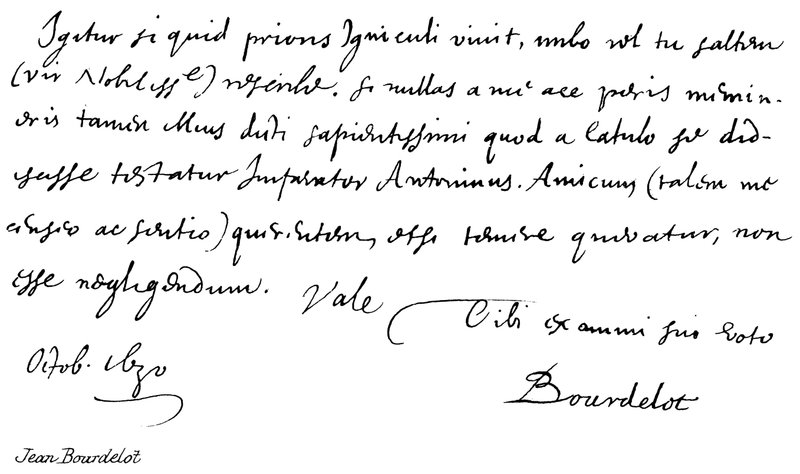 Igitur si quid prioris Igniculi vivit, imbo vel tu saltem
(vir Nobiliss^e) rescribe. Si nullas a me acceperis memin-
eris tamen illius dicti sapientissimi quod a Catulo se did-
icisse testatur Imperator Antoninus. Amicum (talem me
censeo ac sentio) querentem, etsi temere queratur, non
esse negligendum. Vale
Tibi ex animi sui voto
Octob. 1630
Bourdelot
Jean Bourdelot